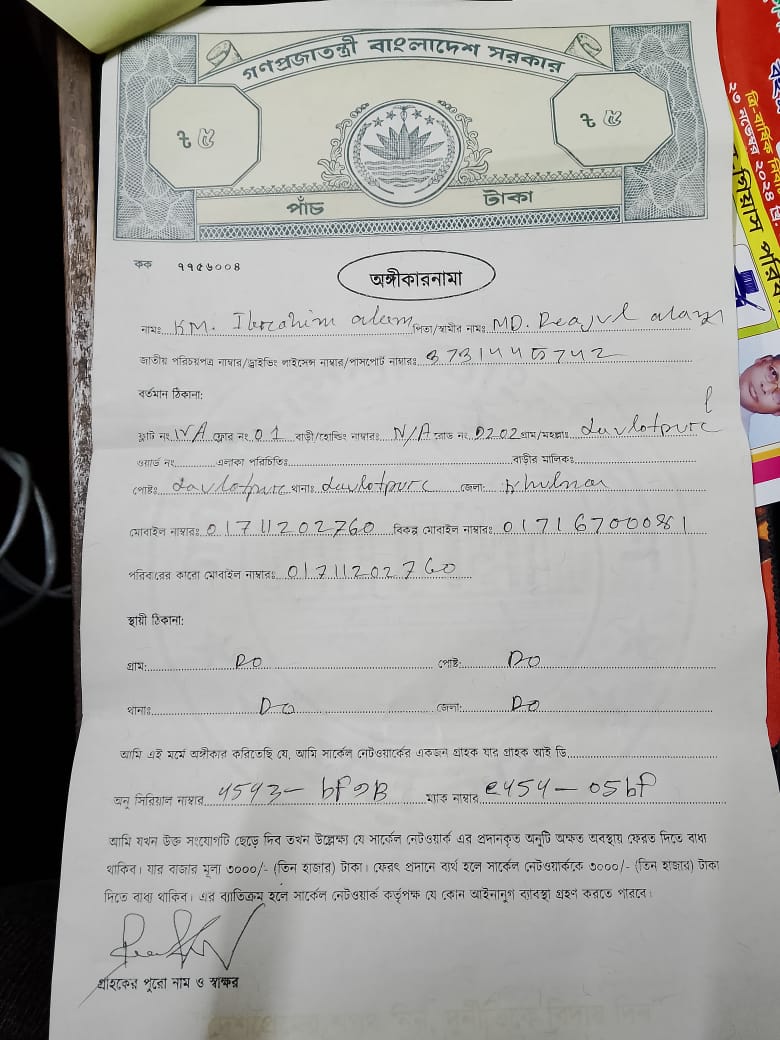 গণপ্রজাতন্ত্রী বাংলাদেশ সরকার
৳ ৫
৳ ৫
পাঁচ টাকা
কক ৭৭৫৬০০৪
অঙ্গীকারনামা
নামঃ KM. Ibrahim alam পিতা/স্বামীর নামঃ MD. Reajul alam
জাতীয় পরিচয়পত্র নাম্বার/ড্রাইভিং লাইসেন্স নাম্বার/পাসপোর্ট নাম্বারঃ 3731445742
বর্তমান ঠিকানা:
ফ্লাট নং N/A ফ্লোর নং 01 বাড়ী/হোল্ডিং নাম্বারঃ N/A রোড নং 0202 গ্রাম/মহল্লাঃ davlotpur
ওয়ার্ড নং এলাকা পরিচিতিঃ বাড়ীর মালিকঃ
পোষ্টঃ davlotpur থানাঃ davlotpur জেলা: Khulna
মোবাইল নাম্বারঃ 01711202760 বিকল্প মোবাইল নাম্বারঃ 01716700081
পরিবারের কারো মোবাইল নাম্বারঃ 01711202760
স্থায়ী ঠিকানা:
গ্রাম: DO পোষ্ট: DO
থানাঃ DO জেলা: DO
আমি এই মর্মে অঙ্গীকার করিতেছি যে, আমি সার্কেল নেটওয়ার্কের একজন গ্রাহক যার গ্রাহক আই ডি
অনু সিরিয়াল নাম্বার 4543- ম্যাক নাম্বার e454-05bf
আমি যখন উক্ত সংযোগটি ছেড়ে দিব তখন উল্লেক্ষ্য যে সার্কেল নেটওয়ার্ক এর প্রদানকৃত অনুটি অক্ষত অবস্থায় ফেরত দিতে বাধ্য
থাকিব। যার বাজার মূল্য ৩০০০/- (তিন হাজার) টাকা। ফেরৎ প্রদানে ব্যর্থ হলে সার্কেল নেটওয়ার্ককে ৩০০০/- (তিন হাজার) টাকা
দিতে বাধ্য থাকিব। এর ব্যাতিক্রম হলে সার্কেল নেটওয়ার্ক কর্তৃপক্ষ যে কোন আইনানুগ ব্যাবস্থা গ্রহণ করতে পারবে।
গ্রাহকের পুরো নাম ও স্বাক্ষর
ত্রি-বার্ষিক
২৩ নভেম্বর ২০২৪ খ্রি.